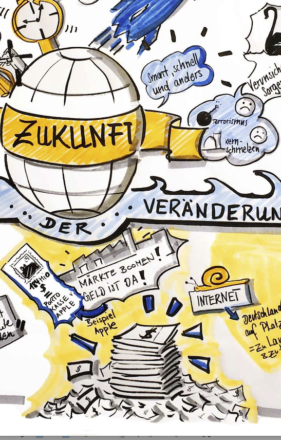 Smart, schnell
und anders
ZUKUNFT
Terrorismus
Kern-
schmelzen
DER VERÄNDERUN
MÄRKTE BOOMEN!
GELD IST DA!
PORTO
KASSE
APPLE
Beispiel
Apple
INTERNET
Deutschland
auf Platz
$